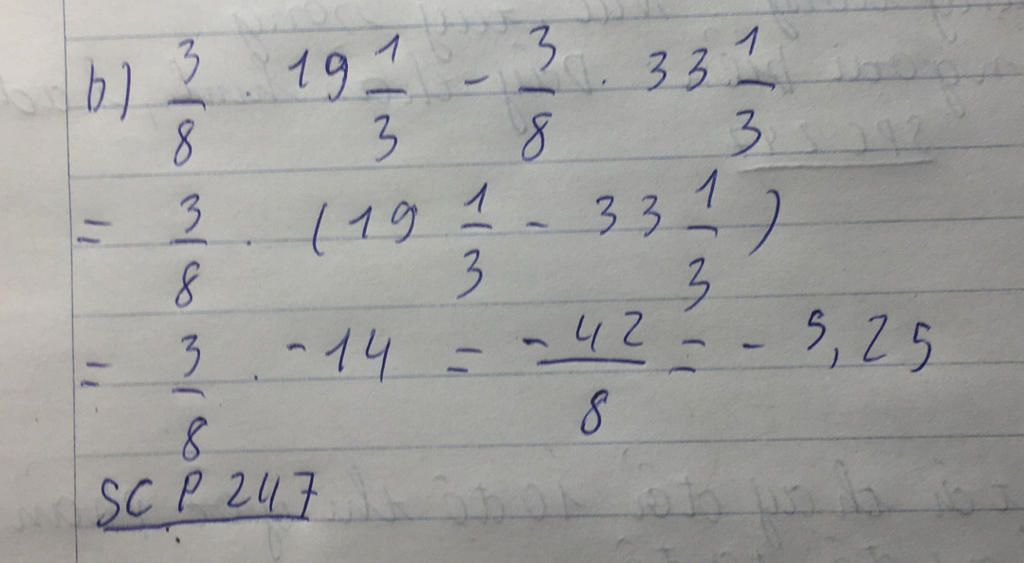 b) 3/8 . 19 1/3 - 3/8 . 33 1/3
= 3/8 . (19 1/3 - 33 1/3)
= 3/8 . -14 = -42/8 = -5,25
SCP 247